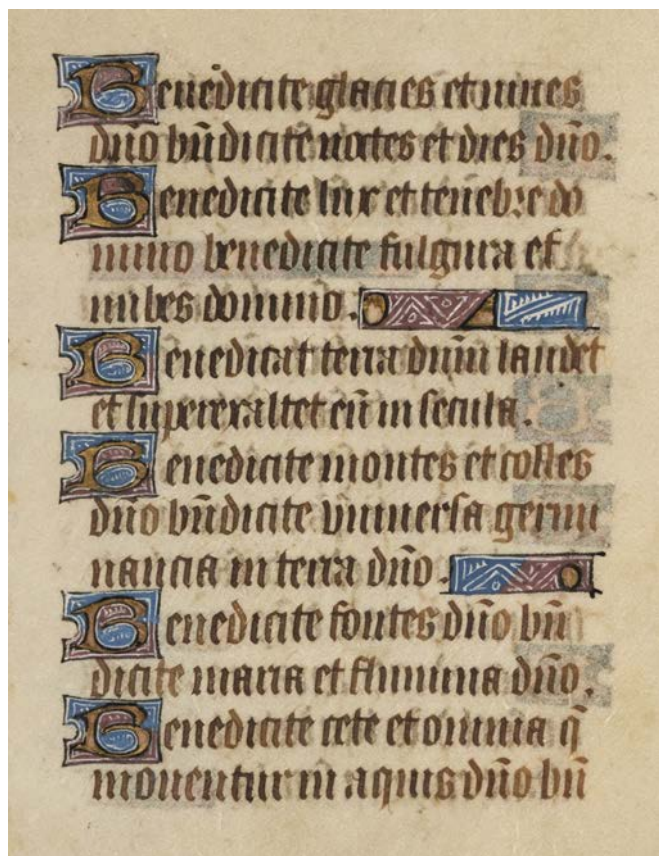 Benedicite glacies et niues
dn̄o bn̄dicite noctes et dies dn̄o.
Benedicite lux et tenebre do
mino benedicite fulgura et
nubes domino.
Benedicat terra dnm̄ laudet
et superexaltet eū in secula.
Benedicite montes et colles
dn̄o bn̄dicite vniuersa germi
nancia in terra dn̄o.
Benedicite fontes dn̄o bn̄
dicite maria et flumina dn̄o.
Benedicite cete et omnia q̄
mouentur in aquis dn̄o bn̄